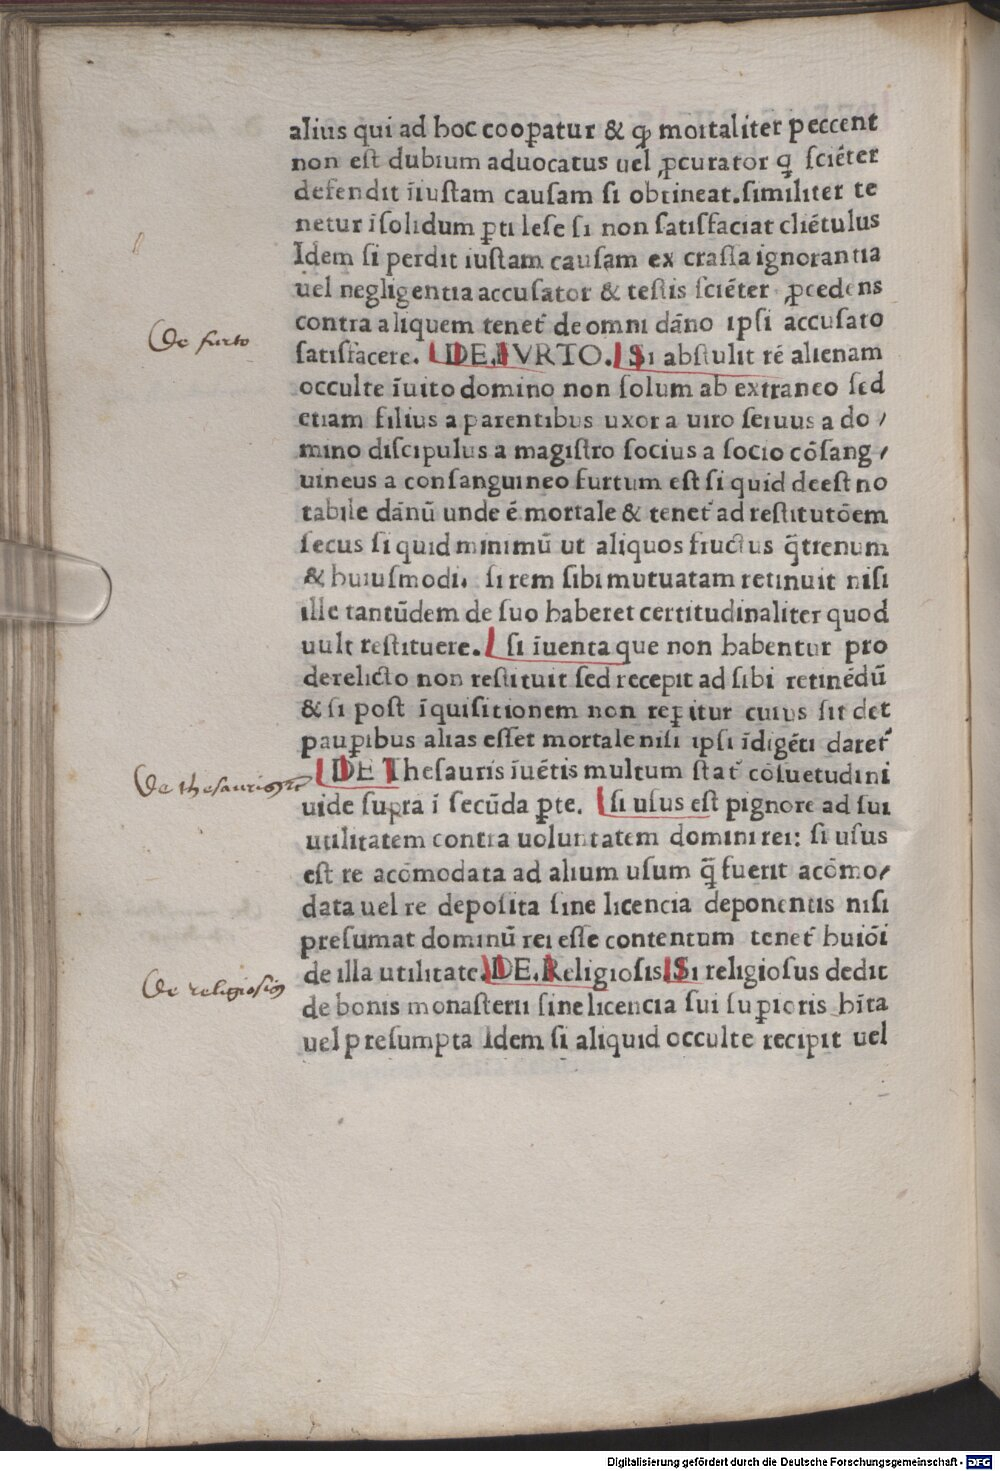 alius qui ad hoc coopatur & ꝙ mortaliter peccent
non est dubium aduocatus uel ꝓcurator q̨ sciēter
defendit īiustam causam si obtineat.similiter te
netur īsolidum ꝑti lese si non satisfaciat cliētulus
Idem si perdit iustam causam ex crassa ignorantia
uel negligentia accusator & testis sciēter ꝓcedens
contra aliquem tenet᷑ de omni dāno ipsi accusato
De furto
satisfacere. DE.FVRTO. Si abstulit rē alienam
occulte īuito domino non solum ab extraneo sed
etiam filius a parentibus uxor a uiro seruus a do/
mino discipulus a magistro socius a socio cōsang/
uineus a consanguineo furtum est si quid deest no
tabile dānū unde ē mortale & tenet᷑ ad restitutōem
secus si quid minimū ut aliquos fructus q̄trenum
& huiusmodi. si rem sibi mutuatam retinuit nisi
ille tantūdem de suo haberet certitudinaliter quod
uult restituere. si īuenta que non habentur pro
derelicto non restituit sed recepit ad sibi retinēdū
& si post īquisitionem non reꝑitur cuius sit det
pauꝑibus alias esset mortale nisi ipsi īdigēti daret᷑
De thesauris
DE Thesauris īuētis multum stat᷑ cōsuetudini
uide supra ī secūda ꝑte. si usus est pignore ad sui
utilitatem contra uoluntatem domini rei: si usus
est re acōmodata ad alium usum q̄ fuerit acōmo/
data uel re deposita sine licencia deponentis nisi
presumat dominū rei esse contentum tenet᷑ huiōi
De religiosis
de illa utilitate. DE.Religiosis Si religiosus dedit
de bonis monasterii sine licencia sui suꝑioris hīta
uel presumpta Idem si aliquid occulte recipit uel
Digitalisierung gefördert durch die Deutsche Forschungsgemeinschaft - DFG